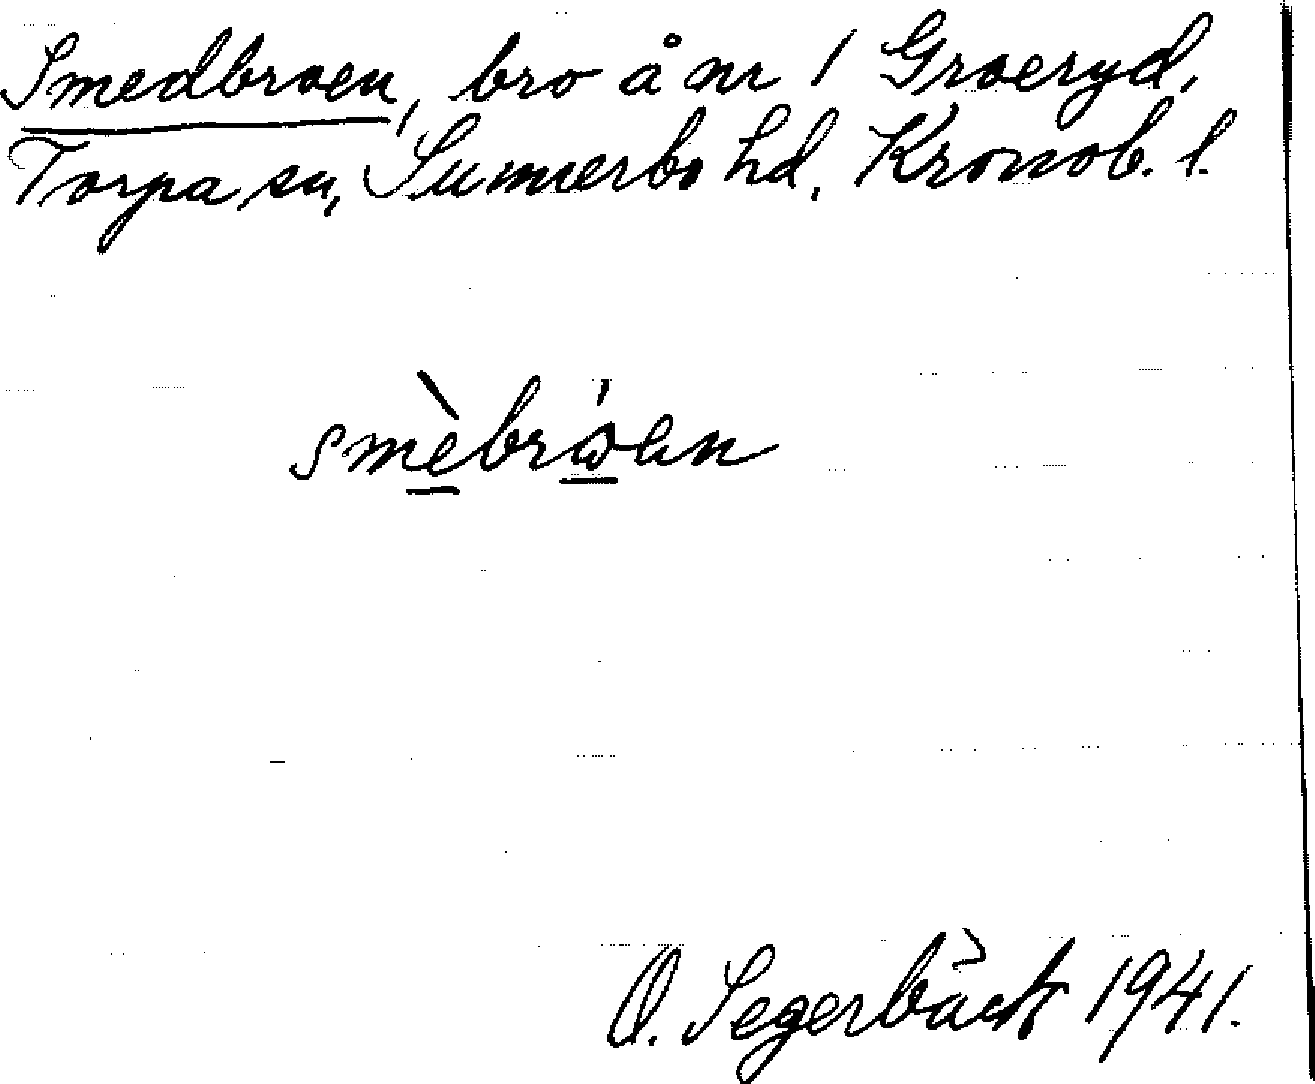 Smedbroen, bro å nr 1 Groeryd,
Torpa sn, Sunnerbo hd, Kronob. l.
smèbrωen
O. Segerbäck 1941.